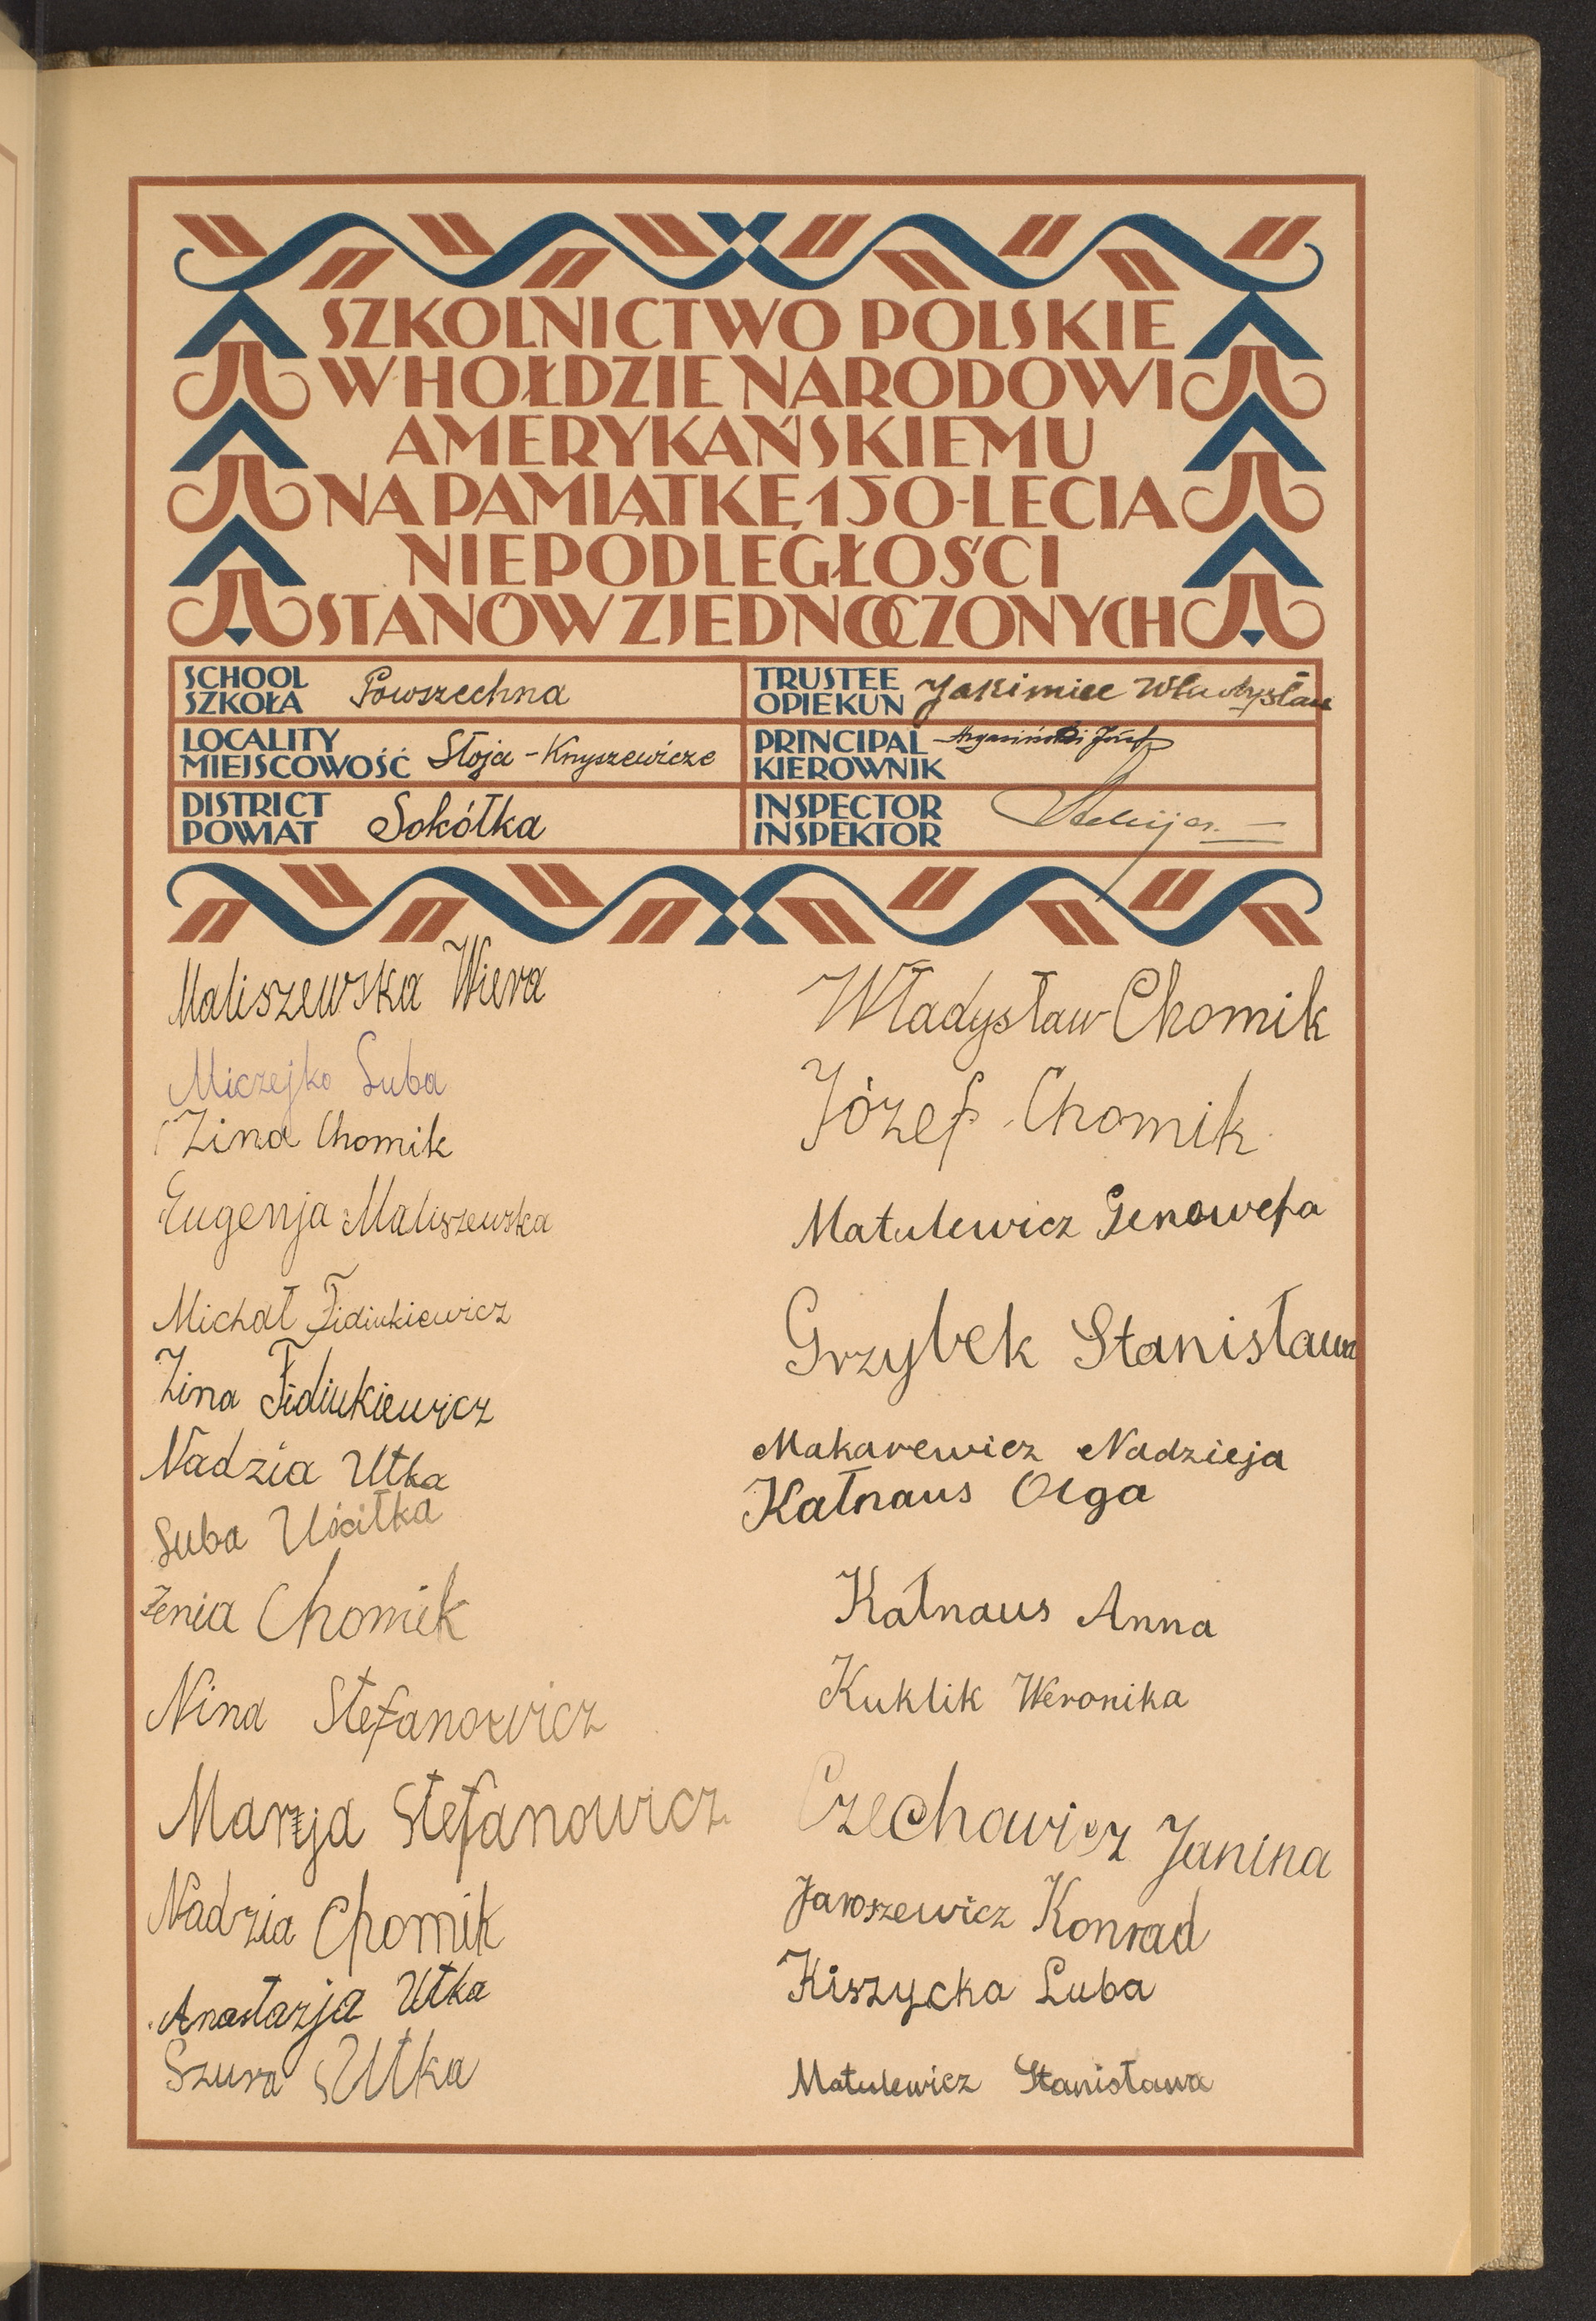 SZKOLNICTWO POLSKIE
W HOŁDZIE NARODOWI
AMERYKAŃSKIEMU
NA PAMIĄTKĘ 150-LECIA
NIEPODLEGŁOŚCI
STANÓW ZJEDNOCZONYCH
SCHOOL
SZKOŁA
Powszechna
TRUSTEE
OPIEKUN
Jakimiec Władysław
LOCALITY
MIEJSCOWOŚĆ
Słoja - Knyszewicze
PRINCIPAL
KIEROWNIK
Józef
DISTRICT
POWIAT
Sokółka
INSPECTOR
INSPEKTOR
Maliszewska Wiera
Miczejko Luba
Zina Chomik
Eugenja Maliszewska
Michał Fidiukiewicz
Zina Fidiukiewicz
Nadzia Utka
Luba
Zenia Chomik
Nina Stefanowicz
Marja Stefanowicz
Nadzia Chomik
Anastazja Utka
Szura Utka
Władysław Chomik
Józef Chomik
Matulewicz Genowefa
Grzybek Stanisława
Makarewicz Nadzieja
Kałnaus Olga
Kałnaus Anna
Kuklik Weronika
Czechowicz Janina
Jaroszewicz Konrad
Kiszycka Luba
Matulewicz Stanisława